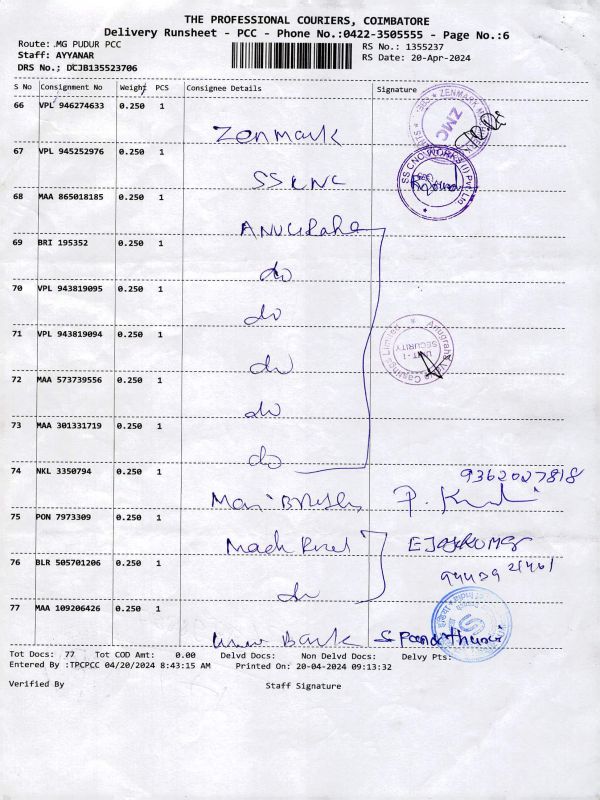 THE PROFESSIONAL COURIERS, COIMBATORE
Delivery Runsheet - PCC - Phone No.:0422-3505555 - Page No.:6
Route: .MG PUDUR PCC
RS No.: 1355237
Staff: AYYANAR
RS Date: 20-Apr-2024
DRS No.; DCJB135523706
S No Consignment No Weight PCS Consignee Details Signature
66 VPL 946274633 0.250 1
Zenmark
67 VPL 945252976 0.250 1
SS CNC
68 MAA 865018185 0.250 1
69 BRI 195352 0.250 1
do
70 VPL 943819095 0.250 1
do
71 VPL 943819094 0.250 1
do
72 MAA 573739556 0.250 1
do
73 MAA 301331719 0.250 1
do
74 NKL 3350794 0.250 1
9362027818
75 PON 7973309 0.250 1
76 BLR 505701206 0.250 1
do
77 MAA 109206426 0.250 1
Bank
Tot Docs: 77 Tot COD Amt: 0.00 Delvd Docs: Non Delvd Docs: Delvy Pts:
Entered By :TPCPCC 04/20/2024 8:43:15 AM Printed On: 20-04-2024 09:13:32
Verified By Staff Signature
ZMC
SS CNC WORKS (I) Pvt Ltd
UNIT - I
SECURITY